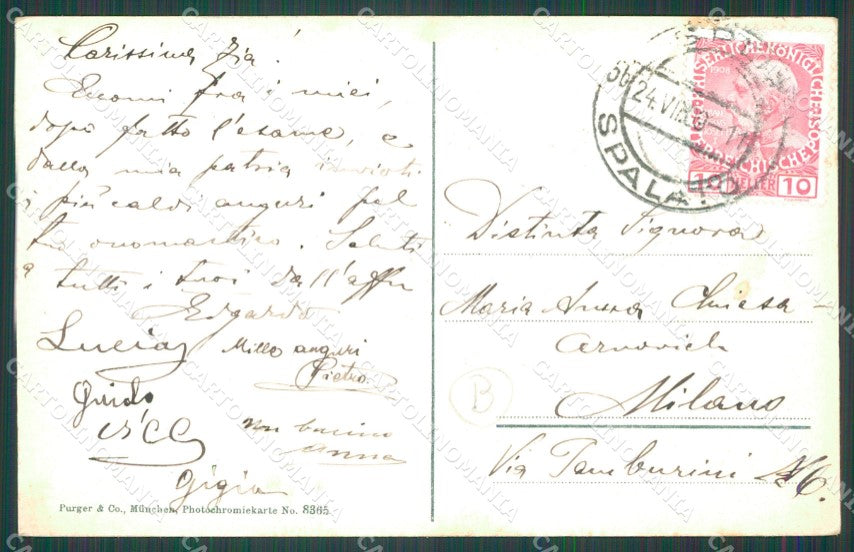 Carissima Zia!
Eccomi fra i miei,
dopo fatto l'esame, e
dalla mia patria invioti
i più caldi auguri pel
tuo onomastico. Saluti
a tutti i tuoi dall'affmo
Edgardo
Lucia
Mille auguri
Pietro
Guido
un bacino
Anna
Gigia
Purger & Co., München, Photochromiekarte No. 8365
SPALATO
KAISERLICHE KÖNIGLICHE
ÖSTERREICHISCHE POST
1908
10 HELLER 10
Distinta Signora
Maria Anna Chiesa -
Cernovich
B
Milano
Via Tamburini
CARTOLINOMANIA